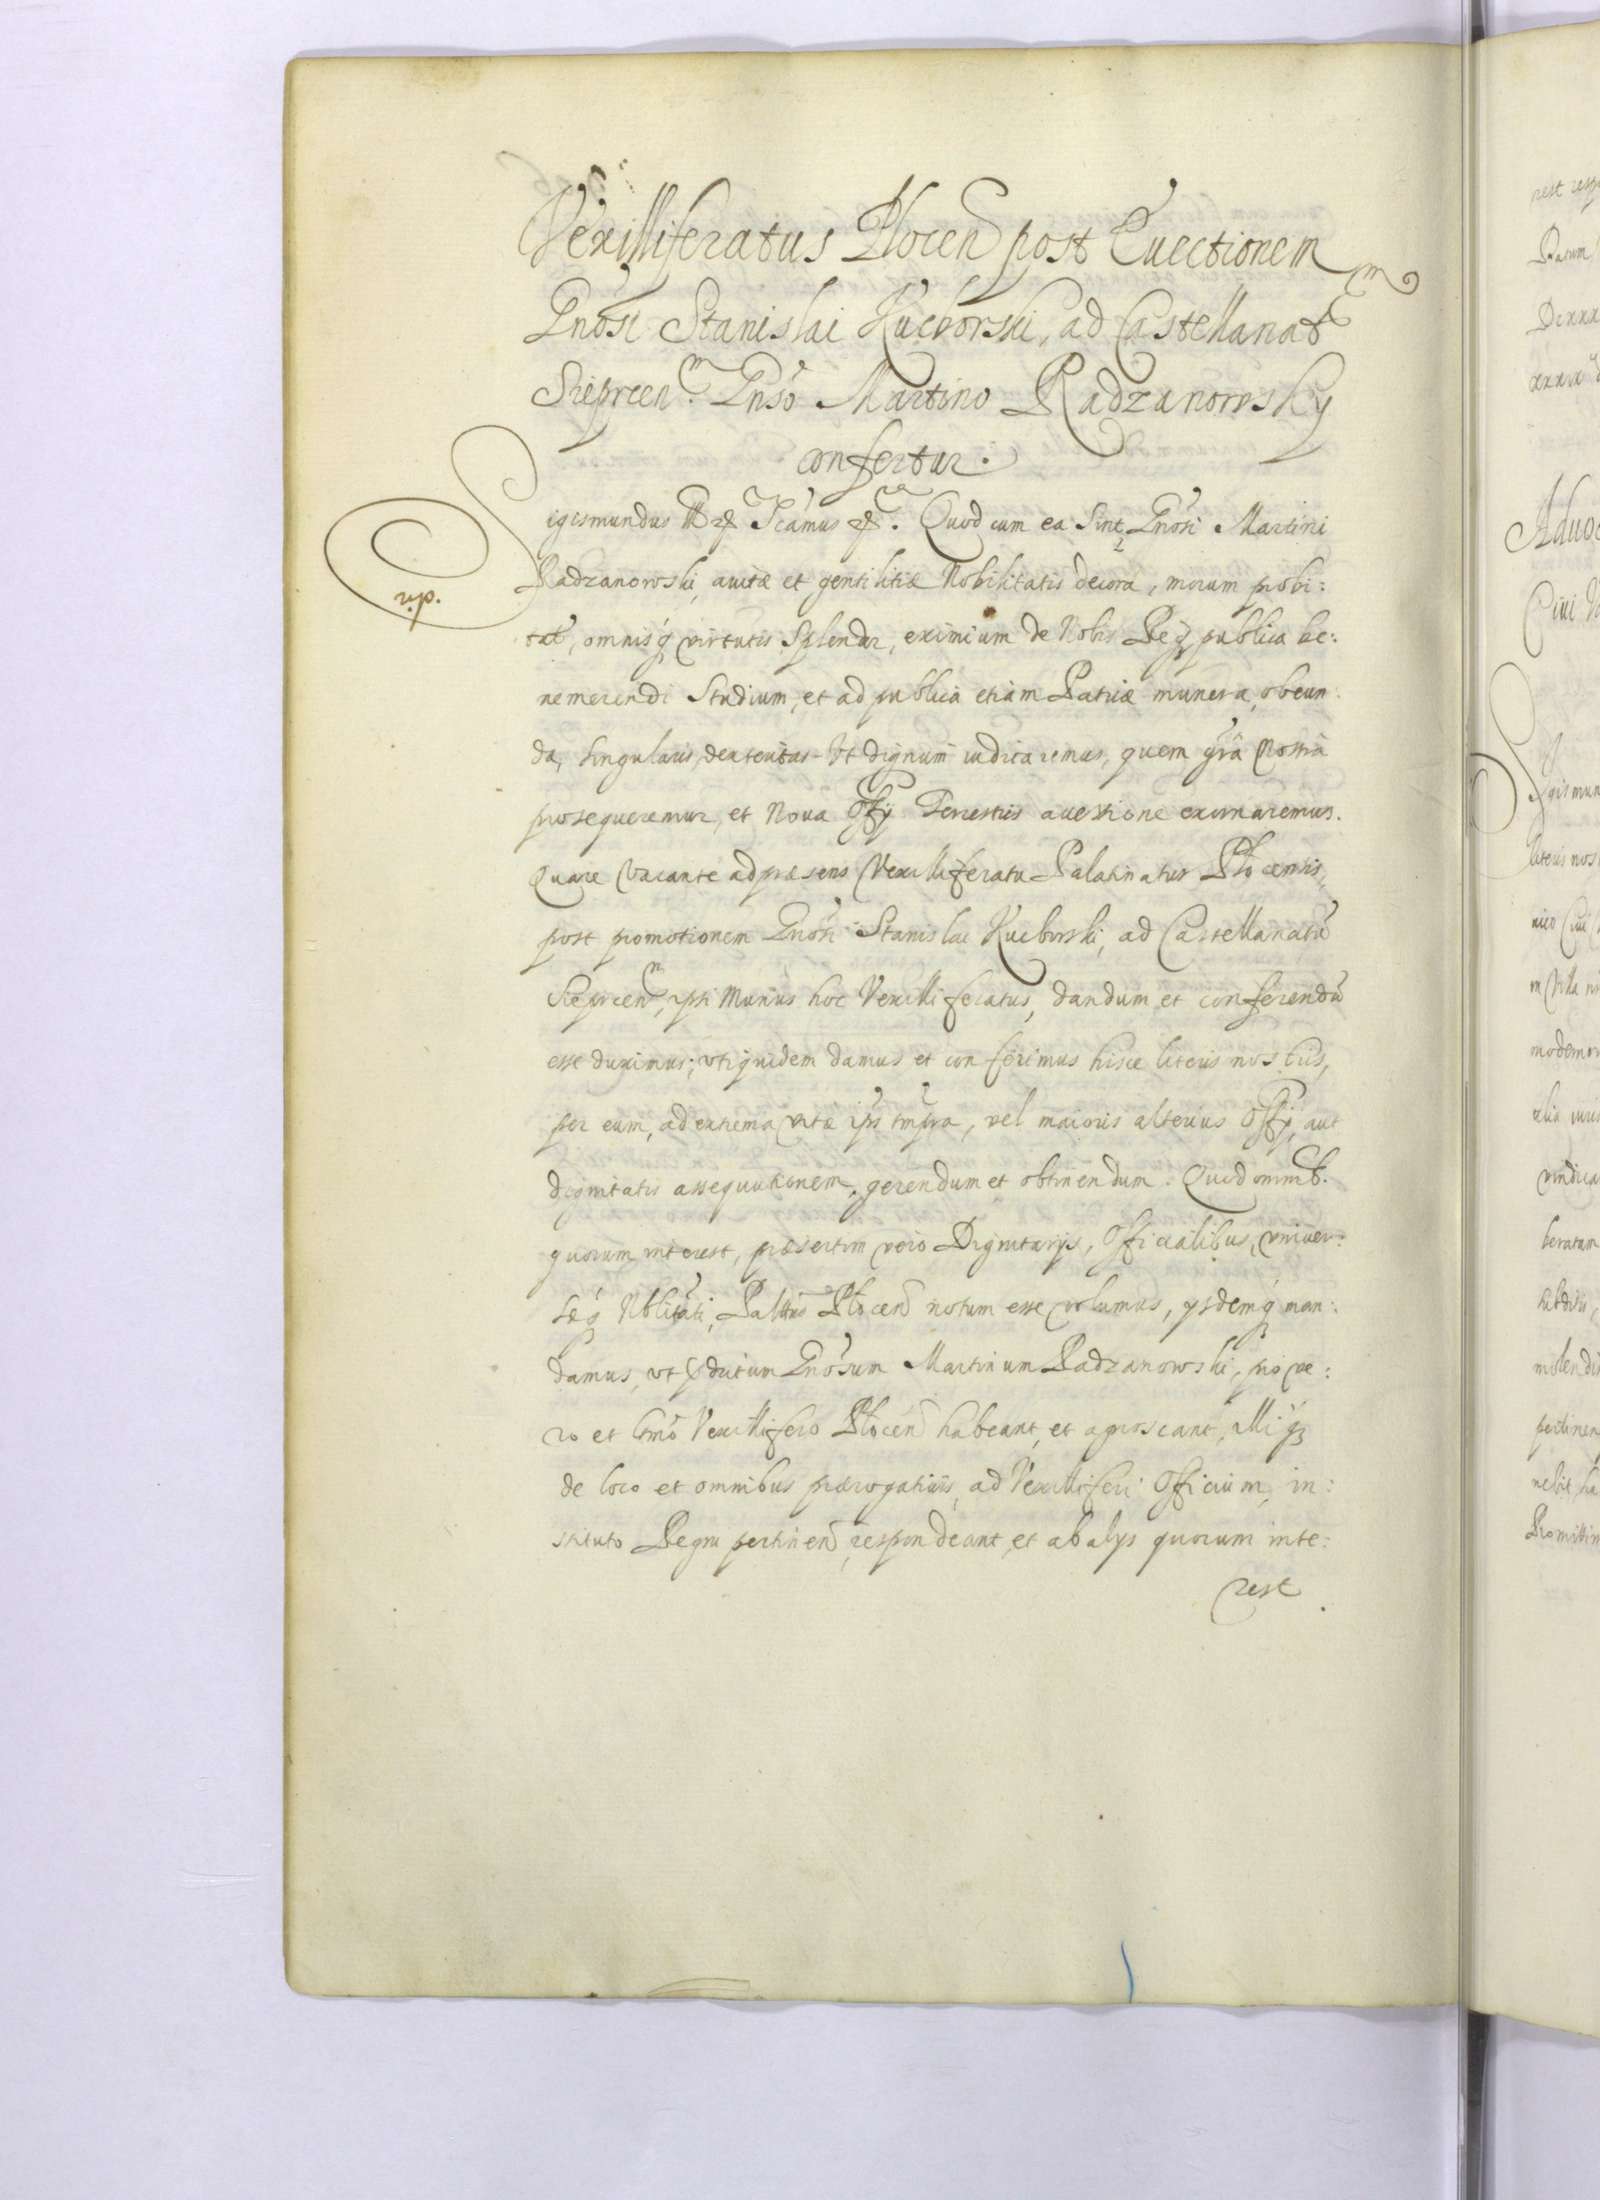 Vexilliferatus Plocen post Euectionem
Gnosi Stanislai Kucborski, ad Castellanatm
Sieprcen. Gnso Martino Radzanowsky
confertur.
Sigismundus III etc. Scamus etc. Quod cum ea sint Gnosi Martini
Radzanowski, auitæ et gentilitiæ Nobilitatis decora, morum probi:
r.p.
tas, omnisq virtutis Splendor, eximium de Nobis Req publica be:
nemerendi Studium, et ad publica etiam Patriæ munera, obeun
da, singularis, dexteritas. Ut dignum iudicaremus, quem gra Nostra
prosequeremur, et Noua Offy Terrestris accessione exornaremus.
Quare Vacante ad præsens Vexilliferatu Palatinatus Plocensis,
post promotionem Gnosi Stanislai Kucborski, ad Castellanatu
Sieprcen, ipsi Munus hoc Vexilliferatus, dandum et conferendu
esse duximus; uti quidem damus et conferimus hisce literis nostris,
per eum, ad extrema vitæ ips tmpra, vel maioris alterius Offy, aut
dignitatis assequutionem, gerendum et obtinendum. Quod omnib.
quorum interest, præsertim vero Dignitarys, Officialibus, vniuer:
sęq Nblitati, Paltus Plocen notum esse volumus, ysdemq man:
damus, vt pdictum Gnosum Martinum Radzanowski, pro ve:
ro et ltmo Vexillifero Plocen habeant, et agnoscant, illiq
de loco et omnibus prærogatiuis, ad Vexilliferi Officium, in:
stituto Regni pertinen, respondeant, et ab alys quorum inte:
rest